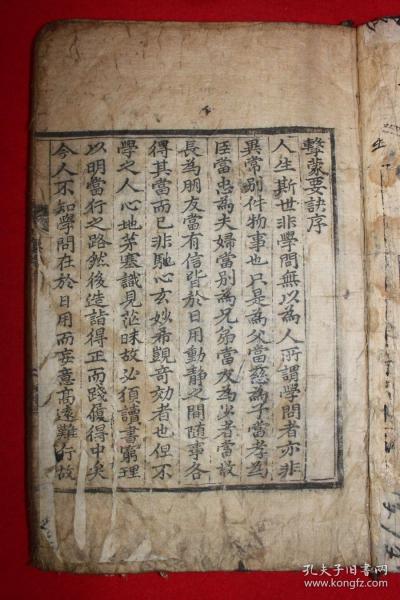 擊蒙要訣序
人生斯世非學問無以為人所謂學問者亦非
異常別件物事也只是為父當慈為子當孝為
臣當忠為夫婦當別為兄弟當友為少者當敬
長為朋友當有信皆於日用動靜之間隨事各
得其當而已非馳心玄妙希覬奇效者也但不
學之人心地茅塞識見茫昧故必須讀書窮理
以明當行之路然後造詣得正而踐履得中矣
今人不知學問在於日用而妄意高遠難行故
孔夫子旧书网
www.kongfz.com